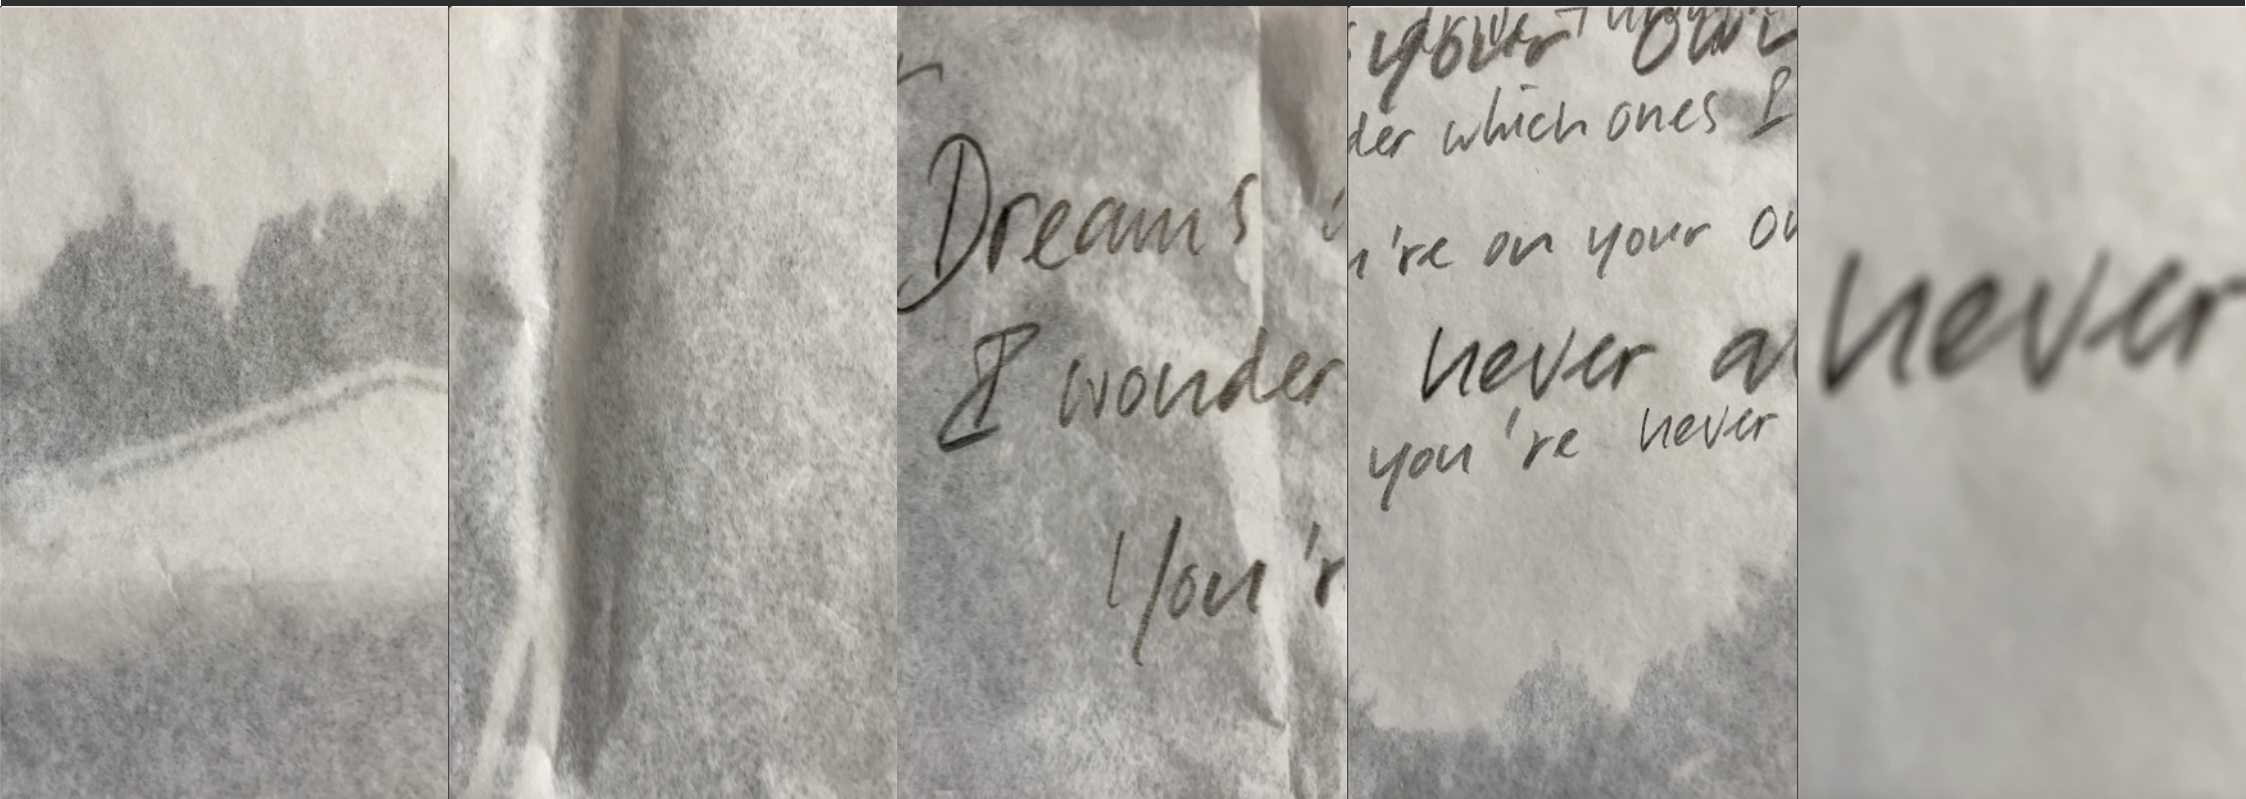 Dreams
I wonder
You'r
your own
der which ones I
u're on your ow
never a
you're never
never